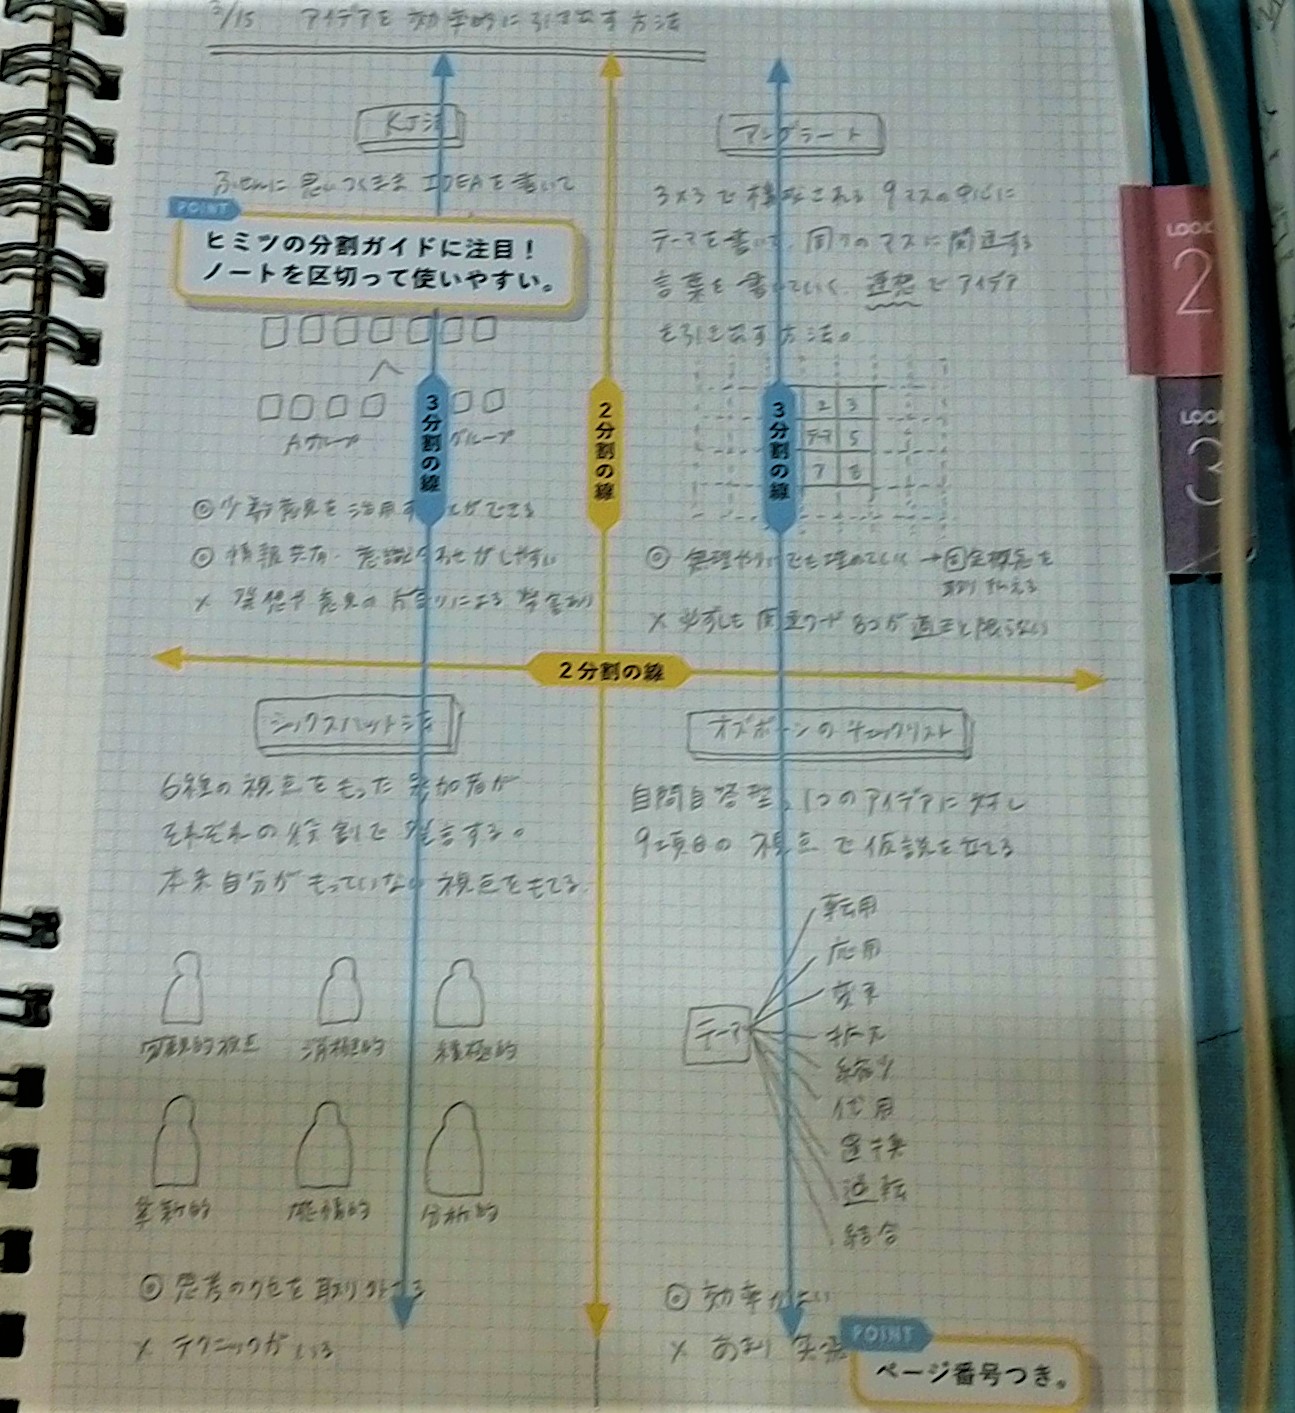 3/15 アイデアを効率的に引き出す方法
KJ法
ふせんに思いつくまま IDEAを書いて
POINT
ヒミツの分割ガイドに注目！
ノートを区切って使いやすい。
Aグループ
グループ
◎少数意見を活用す とができる
◎情報共有・意識合わせがしやすい
×発想や意見の片寄りによる
3分割の線
2分割の線
3分割の線
マンダラート
3×3で構成される9マスの中心に
テーマを書いて、周りのマスに関連する
言葉を書いていく。連想でアイデア
を引き出す方法。
2 3
テーマ 5
7 8
◎無理やりでも埋めていく→全概念を
取り払える
×必ずしも関連ワード8つが適正と限らない
LOOK
2
LOOK
3
2分割の線
シックスハット法
6種の視点をもった参加者が
それぞれの役割で発言する。
本来自分がもっていない視点をもてる。
客観的視点 消極的 積極的
革新的 感情的 分析的
◎思考のクセを取り外せる
×テクニックがいる
オズボーンのチェックリスト
自問自答型、1つのアイデアに対し
9項目の視点で仮説を立てる
テーマ
転用
応用
変更
拡大
縮小
代用
置換
逆転
結合
◎効率がよい
×あまり
POINT
ページ番号つき。